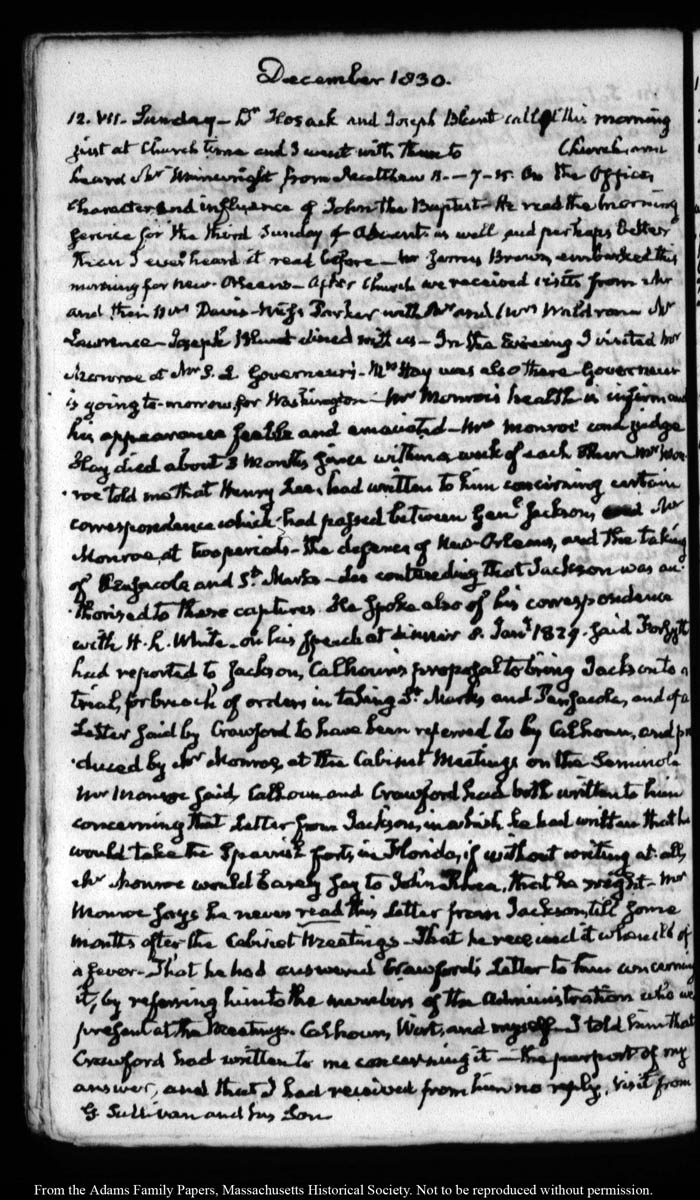 December 1830.
12. VII. Sunday – Dr. Hosack and Joseph Blunt call'd this morning
just at Church time and I went with them to Church, and
heard Mr. Wainwright from Matthew 11. – 7–15. On the Office,
character and influence of John the Baptist – He read the morning
service for the third Sunday of Advent as well and perhaps better
than I ever heard it read before – Mr. James Brown, embarked this
morning for New-Orleans – After Church we received visits from Mr
and then Mrs Davis – Miss Parker with Mr and Mrs Waldron Mr
Lawrence – Joseph Blunt dined with us – In the Evening I visited Mr
Monroe at Mr S. L Governeur's – Mrs Hay was also there – Governeur
is going to-morrow for Washington – Mr Monroe's health is infirm and
his appearance feeble and emaciated – Mrs Monroe and judge
Hay died about 3 Months since within a week of each other Mr Mon-
roe told me that Henry Lee, had written to him concerning certain
correspondence which had passed between Genl. Jackson, and Mr
Monroe, at two periods – the defence of New-Orleans, and the taking
of Pensacola and St. Marks – Lee contending that Jackson was au-
thorised to these captures. He spoke also of his correspondence
with H. L. White – on his speech at dinner 8. Jany. 1827. said Forsyth
had reported to Jackson, Calhoun's proposal to bring Jackson to a
trial, for breach of orders in taking St. Marks and Pensacola, and of a
Letter said by Crawford to have been referred to by Calhoun, and pro
duced by Mr Monroe, at the Cabinet Meetings on the Seminole
Mr Monroe said, Calhoun and Crawford had both written to him
concerning that Letter from Jackson, in which he had written that he
would take the Spanish forts in Florida, if without writing at all,
Mr Monroe would barely say to John Rhea, that he might – Mr
Monroe says he never read this Letter from Jackson, till some
months after the Cabinet Meetings – That he received it when ill of
a fever – That he had answered Crawford's Letter to him concerning
it, by referring him to the members of the Administration who were
present at the Meetings. Calhoun, Wirt, and myself – I told him that
Crawford had written to me concerning it – the purport of my
answer, and that I had received from him no reply. Visit from
G Sullivan and his Son
From the Adams Family Papers, Massachusetts Historical Society. Not to be reproduced without permission.